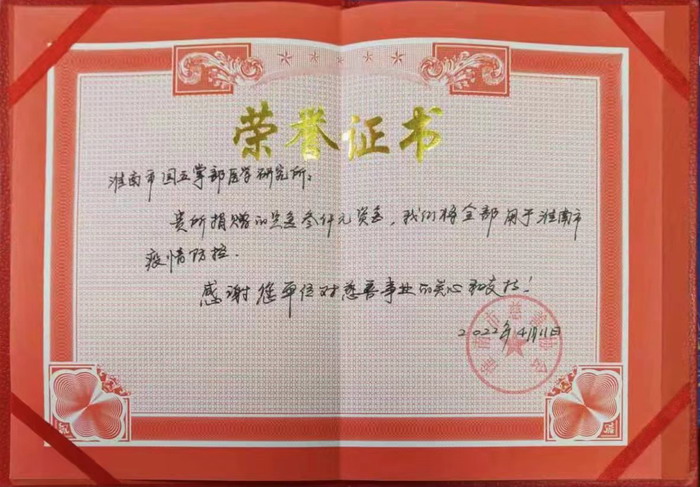 荣誉证书
淮南市国五掌部医学研究所：
贵所捐赠的善款叁仟元资金，我们将全部用于淮南市
疫情防控.
感谢贵单位对慈善事业的关心和支持！
2022年4月11日
淮南市慈善协会